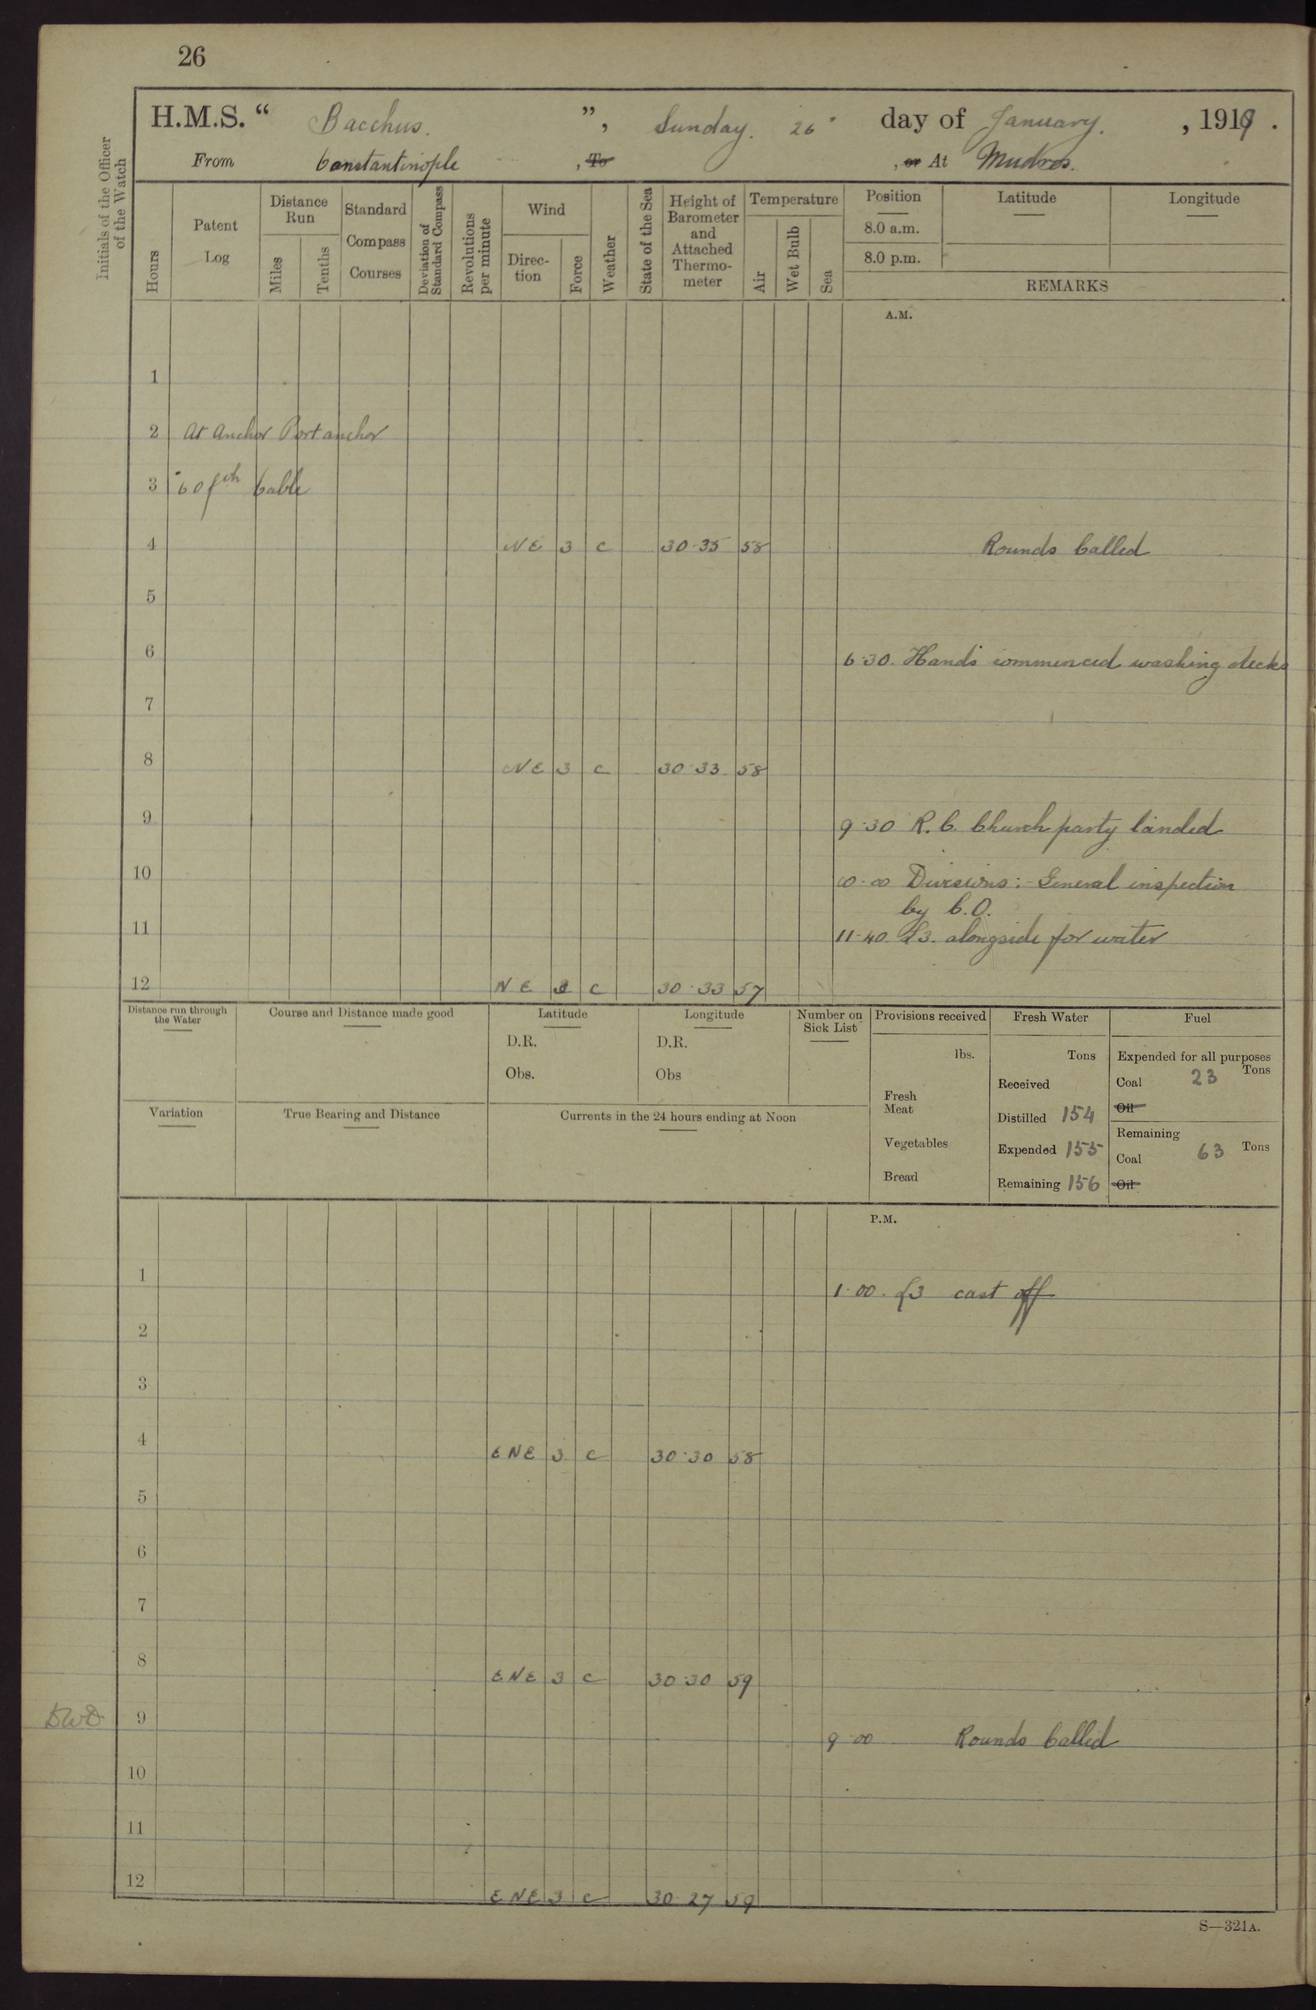 26
H.M.S. “ Bacchus. ”, Sunday. 26" day of January. , 1919 .
From Constantinople , To , or At Mudros.
Initials of the Officer of the Watch
Hours
Patent Log
Distance Run
Miles
Tenths
Standard Compass Courses
Deviation of Standard Compass
Revolutions per minute
Wind
Direc- tion
Force
Weather
State of the Sea
Height of Barometer and Attached Thermo- meter
Temperature
Air
Wet Bulb
Sea
Position
8.0 a.m.
8.0 p.m.
Latitude
Longitude
REMARKS
A.M.
1
2 At Anchor Port anchor
3 60 fth Cable
4 NE 3 c 30·35 58 Rounds Called
5
6 6·30. Hands commenced washing decks
7
8 NE 3 c 30·33 58
9 9·30 R. C. Church party landed
10 10·00 Divisions :- General inspection
by C.O.
11 11·40 £3. alongside for water
12 NE 3 c 30·33 57
Distance run through the Water
Course and Distance made good
Latitude
D.R.
Obs.
Longitude
D.R.
Obs
Number on Sick List
Provisions received
lbs.
Fresh Meat
Vegetables
Bread
Fresh Water
Tons
Received
Distilled 154
Expended 155
Remaining 156
Fuel
Expended for all purposes
Coal 23 Tons
Oil
Remaining
Coal 63 Tons
Oil
Variation
True Bearing and Distance
Currents in the 24 hours ending at Noon
P.M.
1 1·00. £3 cast off
2
3
4 ENE 3 c 30·30 58
5
6
7
8 ENE 3 c 30·30 59
DWD 9 9·00 Rounds Called
10
11
12 ENE 3 c 30·27 59
S—321A.